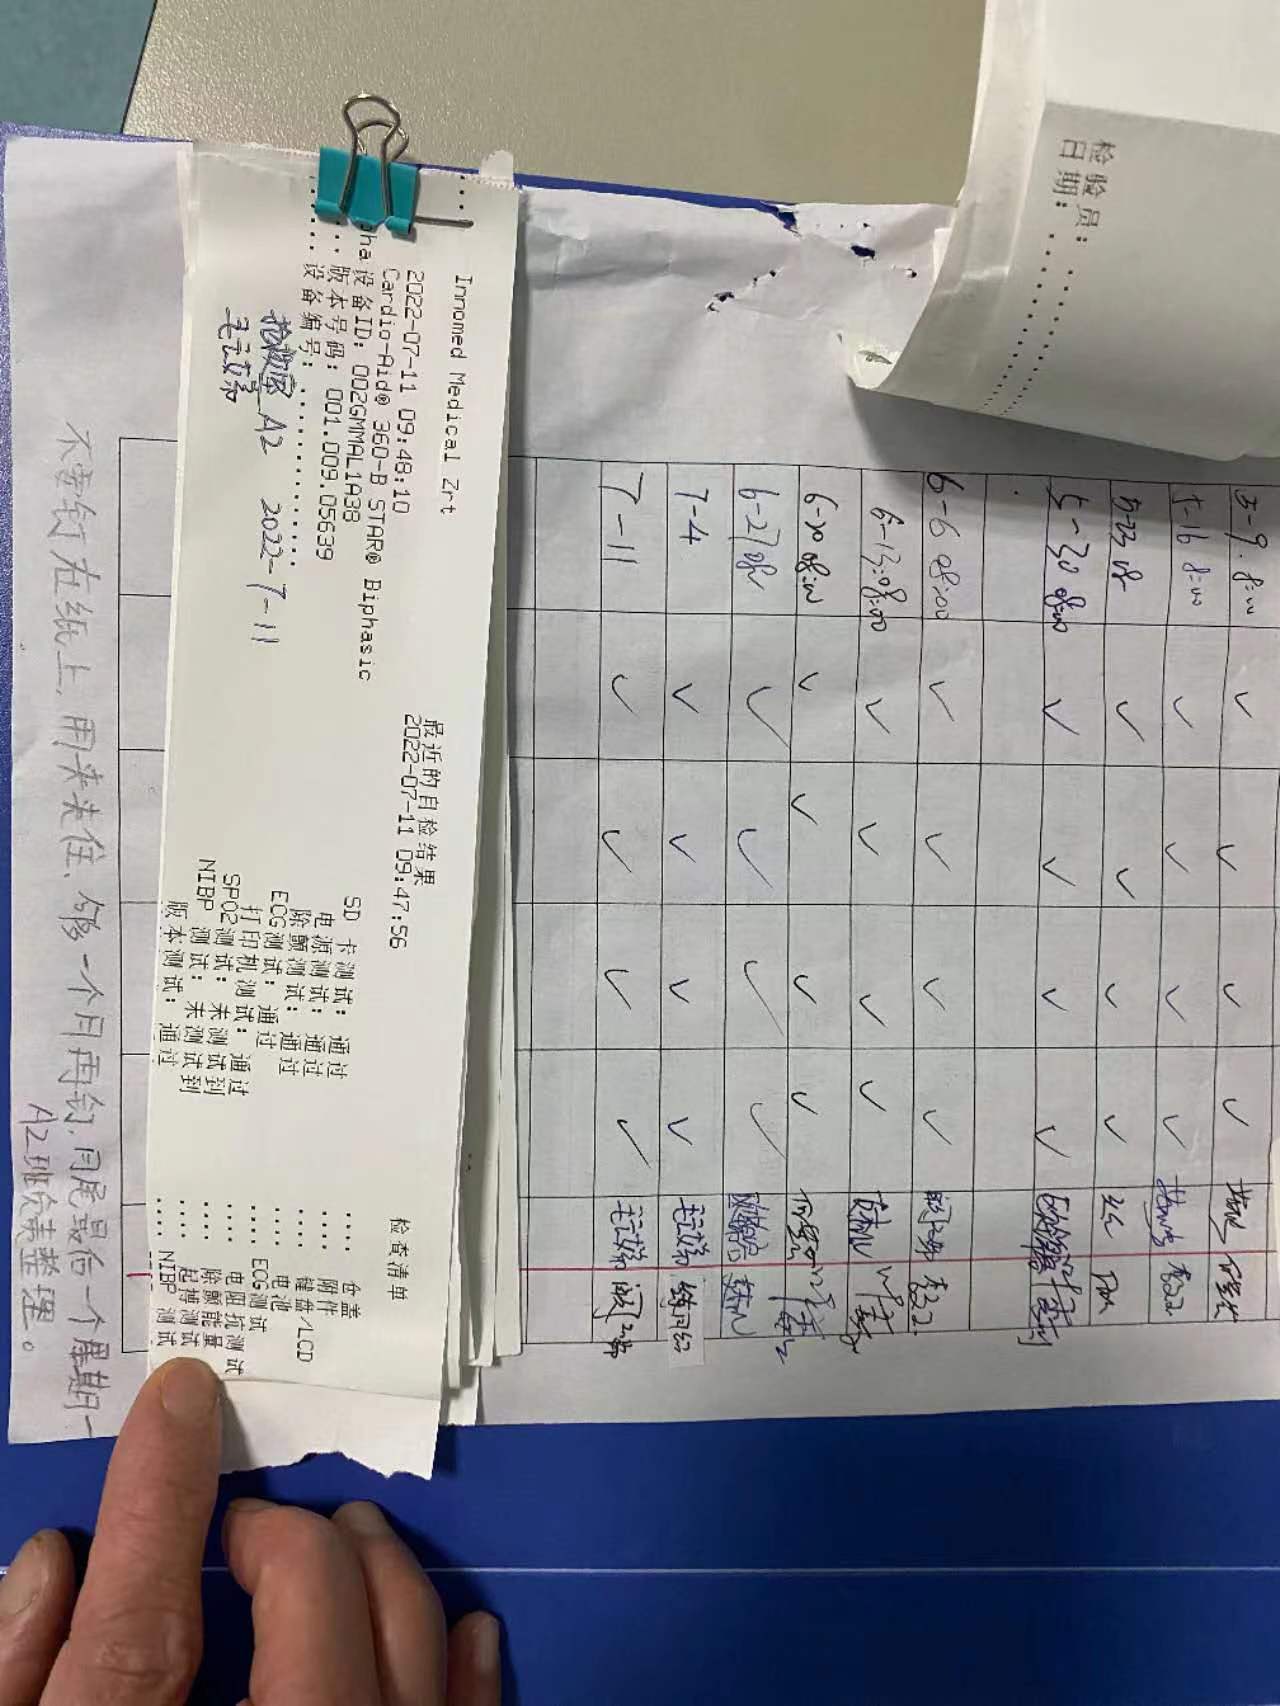 检验员：
日期：
Innomed Medical Zrt
2022-07-11 09:48:10
Cardio-Aid® 360-B STAR® Biphasic
设备ID: 002GMMAL1A38
版本号码: 001.009.05639
设备编号:
抢救室 A2 2022-7-11
最近的自检结果
2022-07-11 09:47:56
SD 卡测试: 通过
电源测试: 通过
除颤测试: 通过
ECG测试: 通过
打印机测试: 通过
SPO2 测试: 未测试到
NIBP 测试: 未测试到
版本测试: 通过
检查清单
仓盖
附件
键盘/LCD
电池
ECG测试
电阻抗测试
除颤能量测试
起搏测试
NIBP 测试
5-9. 8:00
5-16 8:00
5-23 08
5-30 08:00
6-6 08:00
6-13:08:00
6-20 08:00
6-27 08
7-4
7-11
不要钉在纸上，用夹夹住，够一个月再钉，月尾最后一个星期一
A2班负责整理。